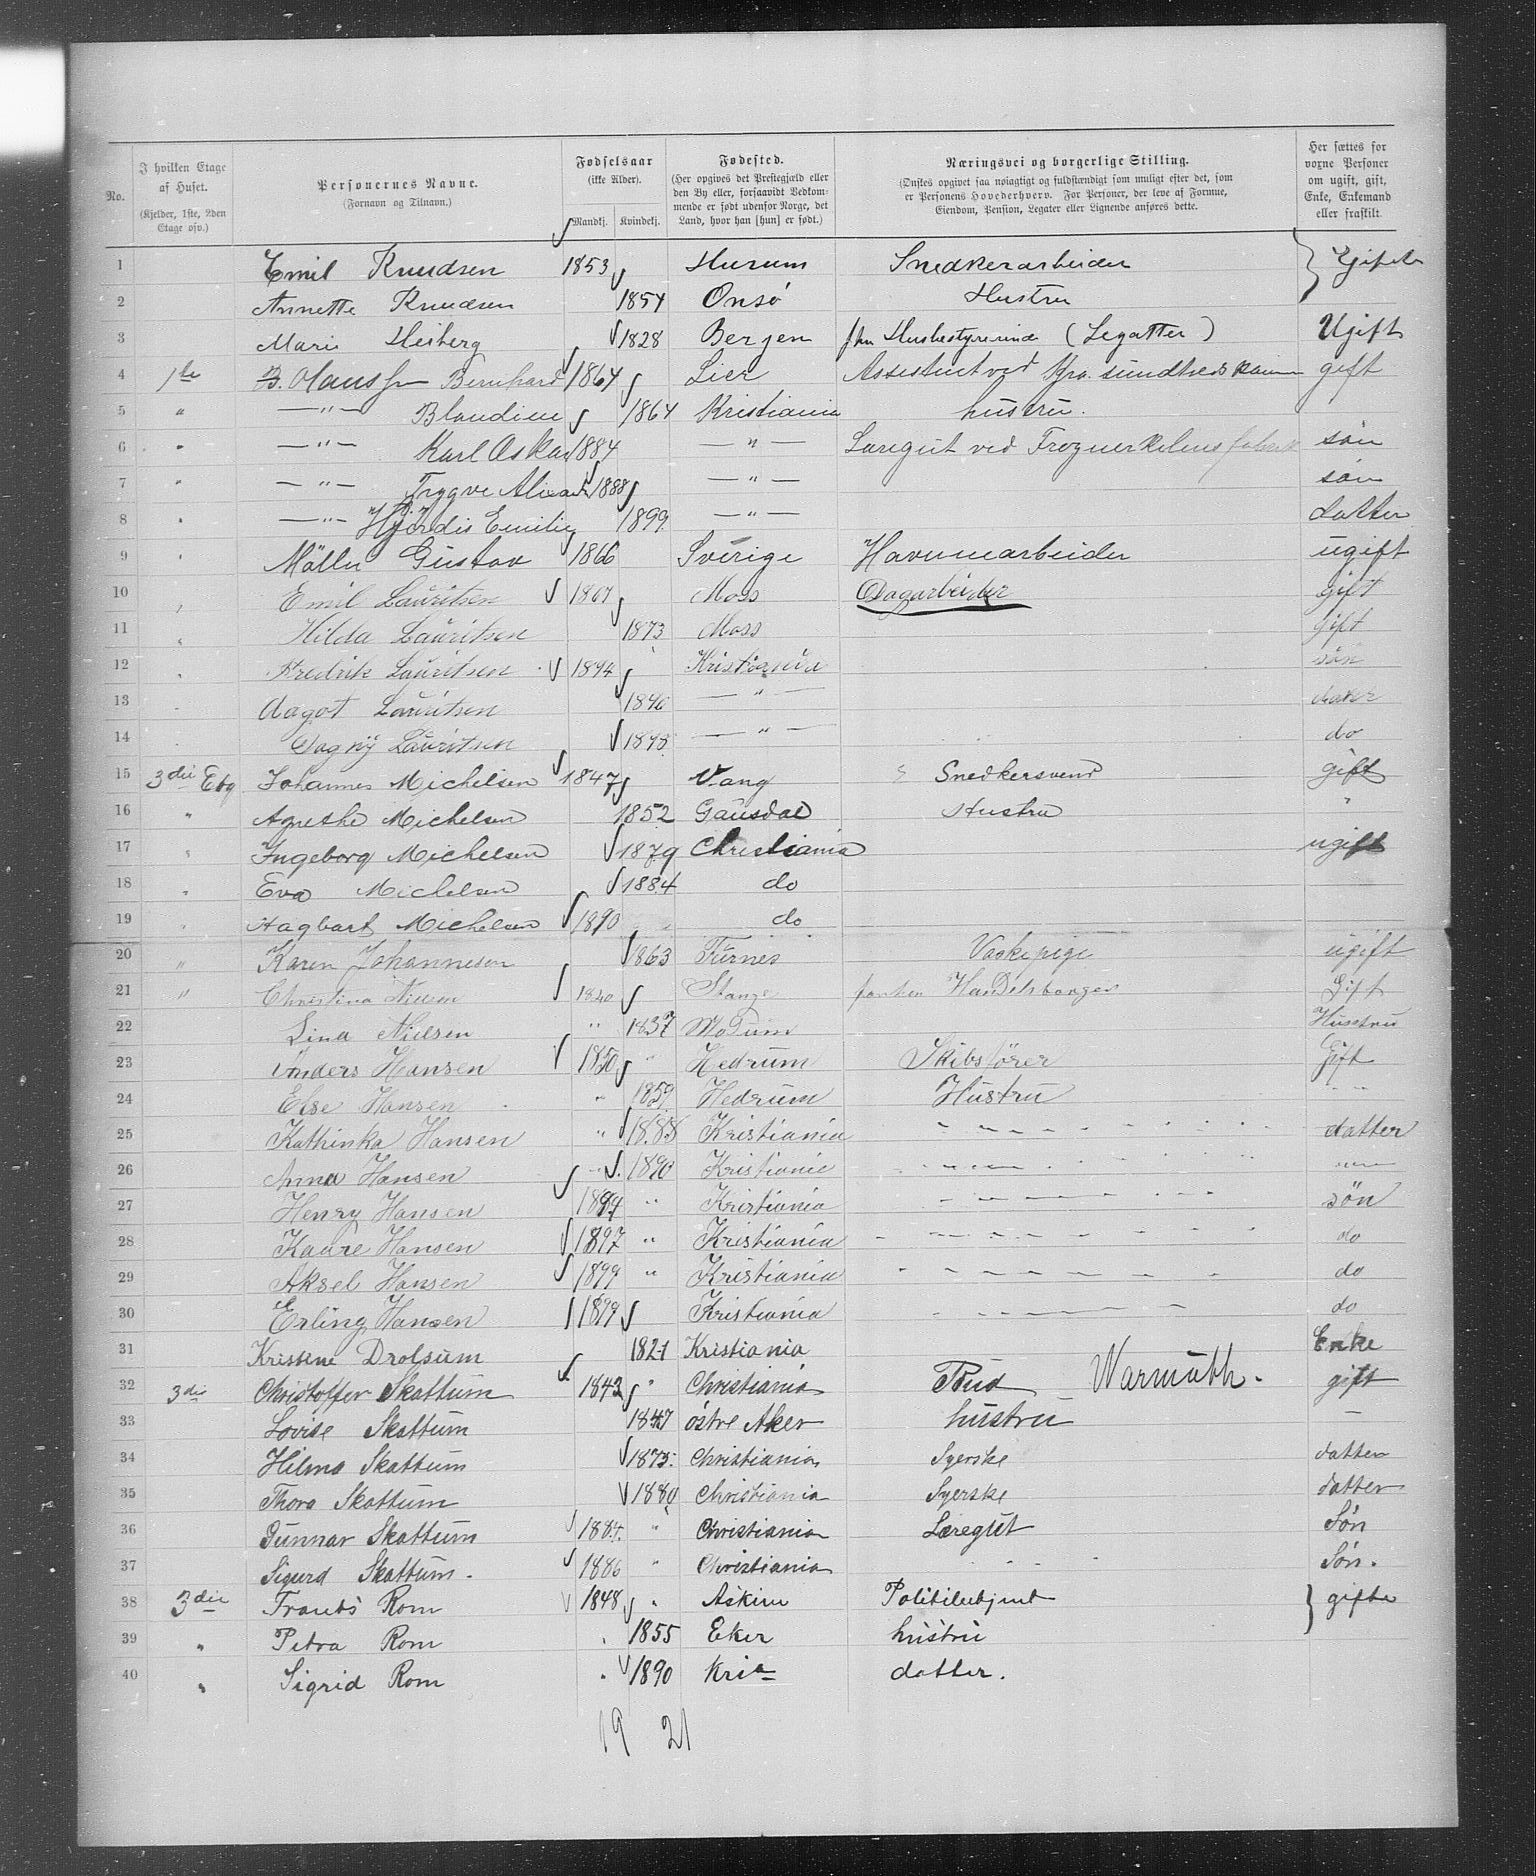 No.
I hvilken Etage af Huset. (Kjelder, 1ste, 2den Etage osv.)
Personernes Navne. (Fornavn og Tilnavn.)
Fødselsaar (ikke Alder). Mandkj. Kvindekj.
Fødested. (Her opgives det Prestegjæld eller den By eller, forsaavidt Vedkommende er født udenfor Norge, det Land, hvor han [hun] er født.)
Næringsvei og borgerlige Stilling. (Ønskes opgivet saa nøiagtigt og fuldstændigt som muligt efter det, som er Personens Hovederhverv. For Personer, der leve af Formue, Eiendom, Pension, Legater eller Lignende anføres dette.
Her sættes for voxne Personer om ugift, gift, Enke, Enkemand eller fraskilt.
1 Emil Knudsen 1853 Hurum Snedkerarbeider } Gifte
2 Annette Knudsen 1854 Onsø Hustru
3 Marie Heiberg 1828 Bergen Husbestyrerinde (Legatter) Ugift
4 1ste B. Olaussen Bernhard 1864 Lier Assistent ved Kra. sundheds kom gift
5 " —"— Blandine 1864 Kristiania hustru.
6 " —"— Karl Oskar 1884 —"— Læregut ved Frognerkilens fabrik søn
7 " —"— Trygve 1888 —"— søn
8 " —"— Hjørdis Emilie 1899 —"— Datter
9 " Møller Gustav 1866 Sverige Havnearbeider ugift
10 " Emil Lauritsen 1867 Moss Dagarbeider gift
11 " Hilda Lauritsen 1873 Moss Gift
12 " Fredrik Lauritsen 1894 Kristiania søn
13 Aagot Lauritsen —"—
14 Dagny Lauritsen 1898 —"— do
15 3die Etg Johannes Michelsen 1847 Vang Snedkersvend gift
16 " Agnethe Michelsen 1852 Gausdal Hustru "
17 " Ingeborg Michelsen 1879 Christiania ugift
18 " Eva Michelsen 1884 do
19 " Hagbart Michelsen 1890 do
20 " Karen Johannesen 1863 Furnes Vaskepige ugift
21 " Christina Nielsen 1840 Stange Handelsborger Gift
22 Lina Nielsen " 1837 Modum Hustru
23 Anders Hansen 1850 " Hedrum Skibsfører Gift
24 Else Hansen " 1859 Hedrum Hustru " "
25 Kathinka Hansen " 1888 Kristiania datter
26 Anna Hansen " 1890 Kristiania
27 Henry Hansen 1894 " Kristiania søn
28 Kaare Hansen 1897 " Kristiania do
29 Aksel Hansen 1899 " Kristiania do
30 Erling Hansen 1899 Kristiania do
31 Kristine Drolsum 1821 Kristiania Enke
32 3die Christoffer Skattum 1842 " Christiania Bud Warmuth. gift
33 Lovise Skattum 1847 østre Aker hustru —
34 Hilma Skattum 1875. Christiania Syerske datter
35 Thora Skattum 1880 Christiania Syerske datter
36 Gunnar Skattum 1884. " Christiania Læregut Søn
37 Sigurd Skattum. 1886 " Christiania Søn.
38 3die Frants Rom 1848 " Askim Politibetjent } gifte
39 " Petra Rom 1855 Eker hustru
40 " Sigrid Rom 1890 Kria datter.
19 21